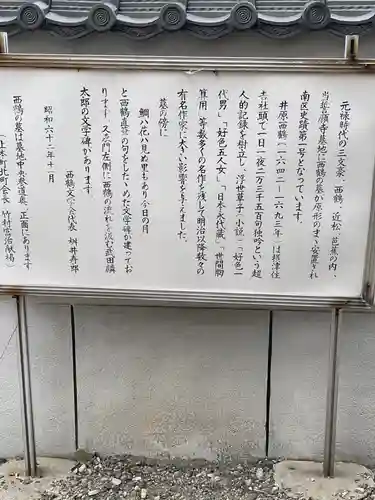 元禄時代の三文豪、西鶴、近松、芭蕉の内、
当誓願寺墓地に西鶴の墓が原形のまゝ安置され
南区史蹟第一号となっています。
井原西鶴(一六四二ー一六九三年)は摂津住
吉社頭で一日一夜二万三千五百句独吟という超
人的記録を樹立し、浮世草子(小説)「好色一
代男」、「好色五人女」、「日本永代蔵」、「世間胸
算用」等数多くの名作を残して明治以降数々の
有名作家に大いに影響を与えました。
墓の傍に
鯛は花は見ぬ里もあり今日の月
と西鶴直筆の句をしたゝめた文学碑が建ってお
ります。又、寺門左側に西鶴の流れを汲む武田麟
太郎の文学碑があります。
西鶴文学会代表 桝井寿郎
昭和六十二年十一月
西鶴の墓は墓地中央参道奥、正面にあります
(上本町北町会長 竹村宮治献場)